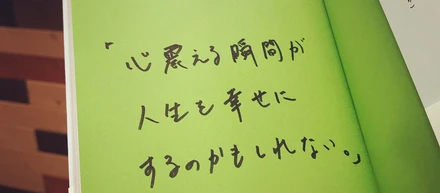 「心震える瞬間が
人生を幸せに
するのかもしれない。」